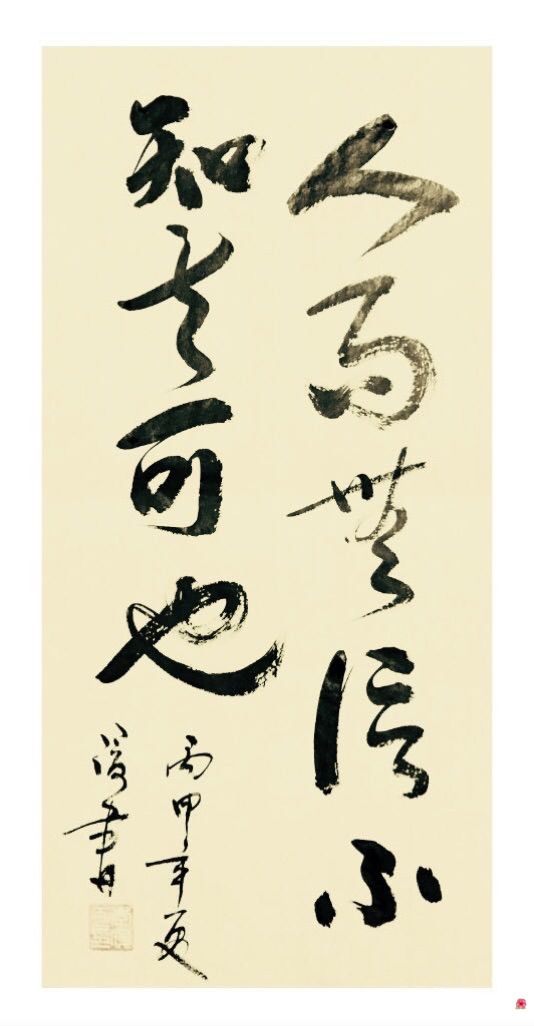 人而無信不
知其可也
丙申年夏
書